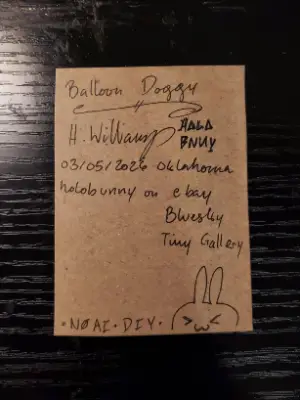 Balloon Doggy
H. Williams HOLO
BNUY
03/05/2026 Oklahoma
holobunny on ebay
Bluesky
Tiny Gallery
• NO AI • DIY •